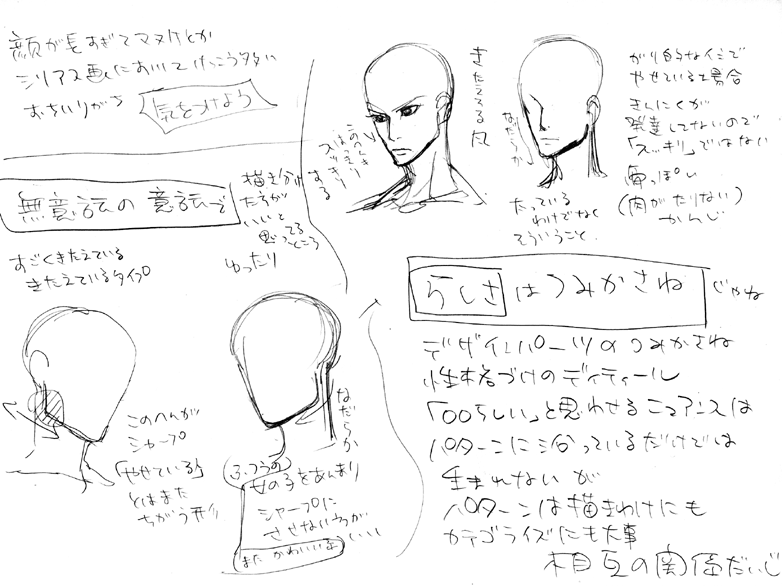 顔が長すぎてマヌケとか
シリアス画においてけっこう多い
おちいりがち
気をつけよう
無意識の意識で
描き分け
たちが
いいと
思ってる
ところ
すごくきたえている
きたえているタイプ
ゆったり
きたえてる風
このへんより
はっきり
スッキリ
する
なだらか
ガリ的なイミで
やせている場合
きんにくが
発達してないので
「スッキリ」ではない
骨っぽい
(肉がたりない)
かんじ
たっている
わけでなく
そういうこと
らしさはつみかさね
じゃね
デザインパーツのつみかさね
性格づけのディティール
「○○らしい」と思わせるニュアンスは
パターンに沿っているだけでは
生まれないが
パターンは描きわけにも
カテゴライズにも大事
相互の関係だいじ
このへんが
シャープ
「やせている」
とはまた
ちがう形
なだらか
ふつうの
女の子をあんまり
シャープに
させない方が
いい
またかわいい系